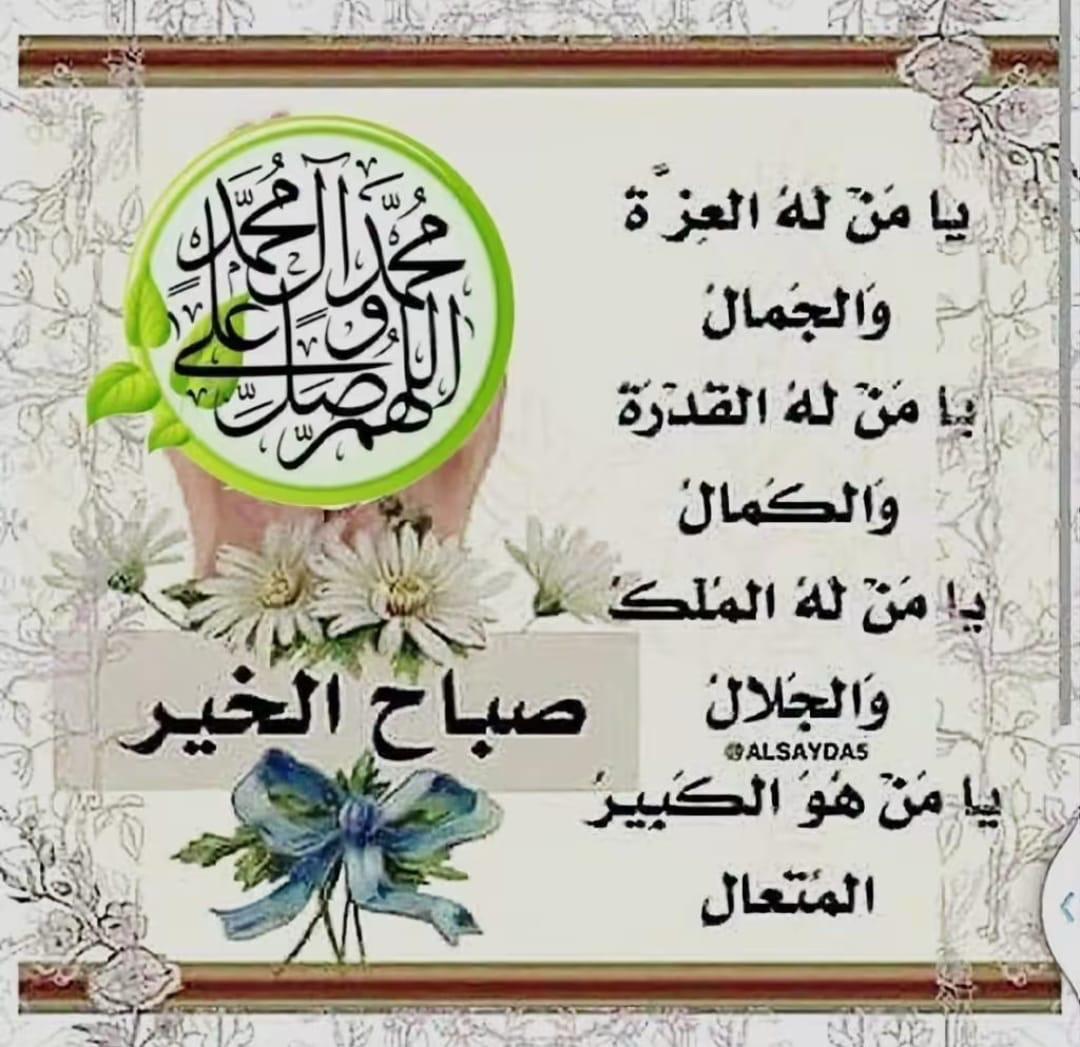 يا مَنْ لهُ العِزَّة
وَالجَمالُ
يا مَنْ لهُ القدْرَة
وَالكَمالُ
يا مَنْ لهُ المُلْكُ
وَالجَلالُ
@ALSAYDA5
يا مَنْ هُوَ الكَبِيرُ
المُتَعال
اللهم صلِّ على محمد وآل محمد
صباح الخير